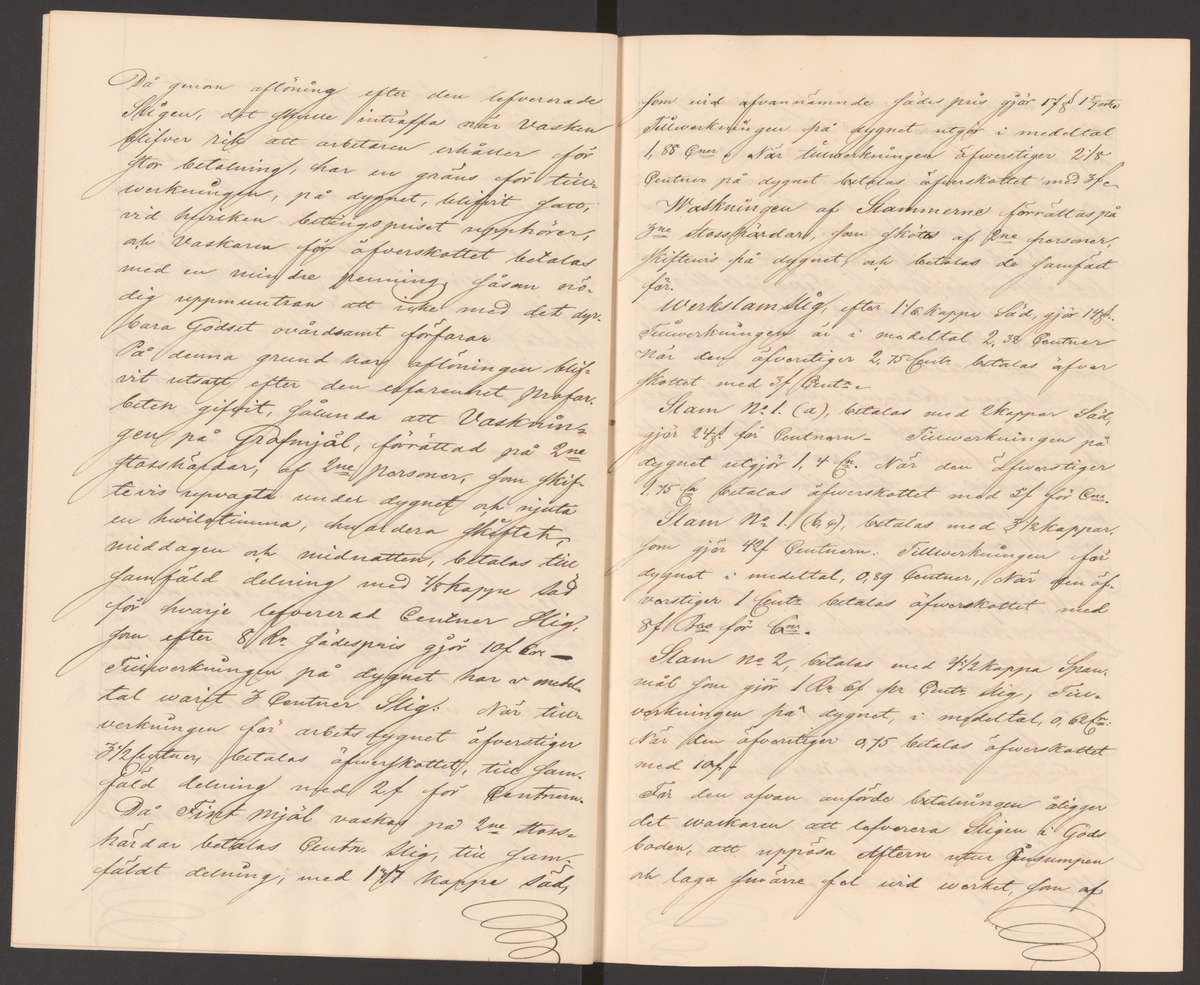 Då genom aflöning efter den lefvererade
Sligen, det skulle inträffa när Vasken
blifver rik att arbetaren erhåller för
stor betalning, har en gräns för till-
werkningen, på dygnet, blifvit satt,
vid hvilken betingspriset upphörer,
och Vaskaren för öfverskottet betalas
med en mindre penning, såsom nö-
dig uppmuntran att icke med det dyr-
bara Godset ovårdsamt förfara
På denna grund har aflöningen blif-
vit utsatt efter den erfarenhet profar-
beten gifvit, sålunda att Vasknin-
gen på Grofmjöl, förrättad på 2ne
stosshärdar, af 2ne personer, som skif-
tevis upvagta under dygnet och njuta
en hvilotimma, hvardera skiftet,
middagen och midnatten, betalas till
samfäld delning med 7/8 kappe Säd
för hvarje lefvererad Centner Slig,
som efter 8 Rr sädespris gjör 10f 6rs
Tillwerkningen på dygnet har i medel-
tal warit 3 Centner Slig: När till-
verkningen för arbetsdygnet öfverstiger
3 1/2 Centner, betalas öfwerskottet, till sam-
fäld delning med 2f för Centnern.
Då Fint Mjöl vaskas på 2ne stoss-
härdar betalas Centn. Slig, till sam-
fäldt delning, med 1 kappe Säd,
som vid ofvannämnde sädes pris gjör 17f
Tillwerkningen på dygnet utgör i medeltal
1,88 Cner. När tillwerkningen öfwerstiger 2 1/8
Centner på dygnet betalas öfverskottet med 3f
Waskningen af Slammerne förrättas på
3ne stosshärdar, som skötes af 2ne personer,
skiftevis på dygnet, och betalas de samfält
för.
Werkslam Slig, efter 1 1/6 kappe Säd, gjör 14f.
Tillwerkningen är i medeltal 2,38 Centner
När den öfverstiger 2,75 Centr betalas öfver
skottet med 3f Centr
Slam No 1. (a), betalas med 2 kappar Säd,
gjör 24f för Centnern – Tillwerkningen på
dygnet utgjör 1,4 Cn. När den öfwerstiger
1.75 Cn betalas öfwerskottet med 5f för Cnr.
Slam No 1. (b,c), betalas med 3 1/2 kappar,
som gjör 42f Centnern. Tillwerkningen för
dygnet i medeltal, 0,89 Centner, När den öf-
verstiger 1 Centr betalas öfwerskottet med
8f Bco för Cnr.
Slam no 2, betalas med 4 1/2 kappe Span-
mål som gjör 1 Rr 6f pr Centr Slig, Till-
verkningen på dygnet, i medeltal, 0,62 Cn:
När den öfverstiger 0,75 betalas öfwerskottet
med 10f –
För den ofvan anförde betalningen åligger
det waskaren att lefverera Sligen i Gods
boden, att uppösa Aftern utur
och laga smärre fel wid werket, som af